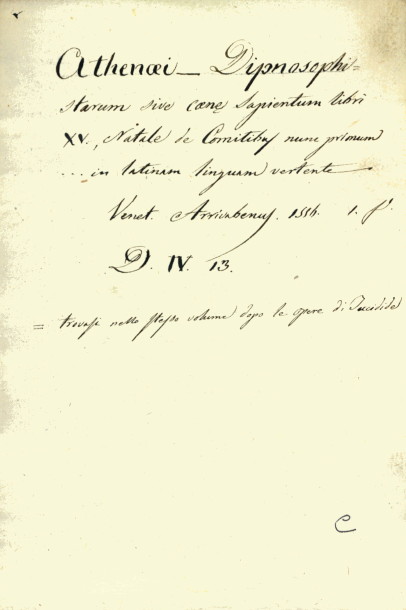 Athenæi — Dipnosophi=
starum sive cœnę Sapientum libri
XV., Natale de Comitibus nunc primum
... in latinam linguam vertente
Venet. Arrivabenus. 1556. 1. f°.
D. IV. 13.
= trovasi nello stesso volume dopo le opere di Tucidide
C